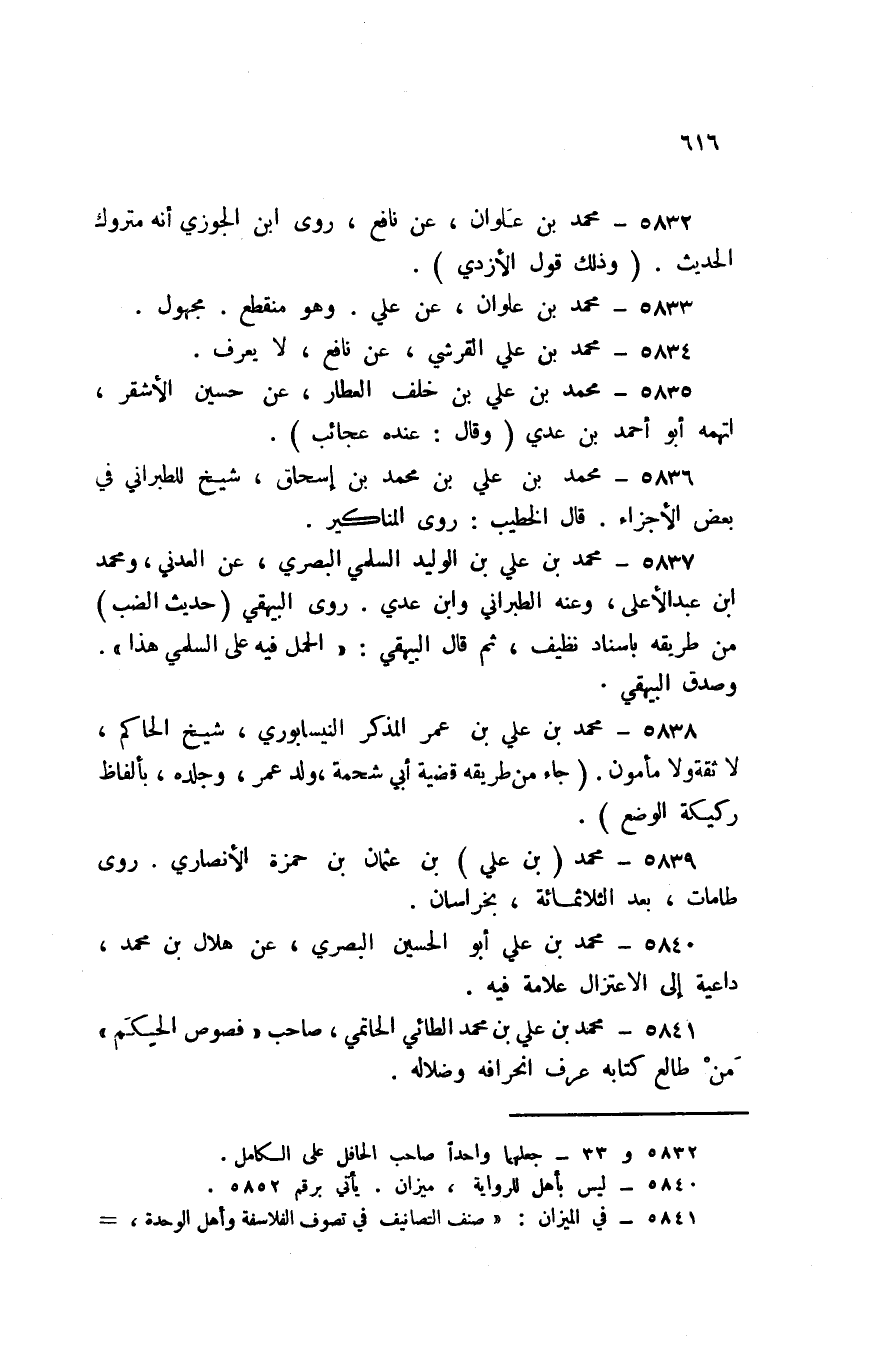 ٦١٦
٥٨٣٢ – محمد بن عَلوان ، عن نافع ، روى ابن الجوزي أنه متروك
الحديث . ( وذلك قول الأزدي ) .
٥٨٣٣ – محمد بن علوان ، عن علي . وهو منقطع . مجهول .
٥٨٣٤ – محمد بن علي القرشي ، عن نافع ، لا يعرف .
٥٨٣٥ – محمد بن علي بن خلف العطار ، عن حسين الأشقر ،
اتهمه أبو أحمد بن عدي ( وقال : عنده عجائب ) .
٥٨٣٦ – محمد بن علي بن محمد بن إسحاق ، شيخ للطبراني في
بعض الأجزاء . قال الخطيب : روى المناكير .
٥٨٣٧ – محمد بن علي بن الوليد السلمي البصري ، عن العدني ، ومحمد
ابن عبدالأعلى ، وعنه الطبراني وابن عدي . روى البيهقي ( حديث الضب )
من طريقه باسناد نظيف ، ثم قال البيهقي : « الحمل فيه على السلمي هذا » .
وصدق البيهقي .
٥٨٣٨ – محمد بن علي بن عمر المذكر النيسابوري ، شيخ الحاكم ،
لا ثقة ولا مأمون . ( جاء من طريقه قضية أبي شحمة ، ولد عمر ، وجلده ، بألفاظ
ركيكة الوضع ) .
٥٨٣٩ – محمد ( بن علي ) بن عثمان بن حمزة الأنصاري . روى
طامات ، بعد الثلاثمائة ، بخراسان .
٥٨٤٠ – محمد بن علي أبو الحسين البصري ، عن هلال بن محمد ،
داعية إلى الاعتزال علامة فيه .
٥٨٤١ – محمد بن علي بن محمد الطائي الحاتمي ، صاحب « فصوص الحِكَم »
مَنْ طالع كتابه عرف انحرافه وضلاله .
٥٨٣٢ و ٣٣ – جعلها واحداً صاحب الحافل على الكامل .
٥٨٤٠ – ليس بأهل للرواية ، ميزان . يأتي برقم ٥٨٥٢ .
٥٨٤١ – في الميزان : « صنف التصانيف في تصوف الفلاسفة وأهل الوحدة ، =